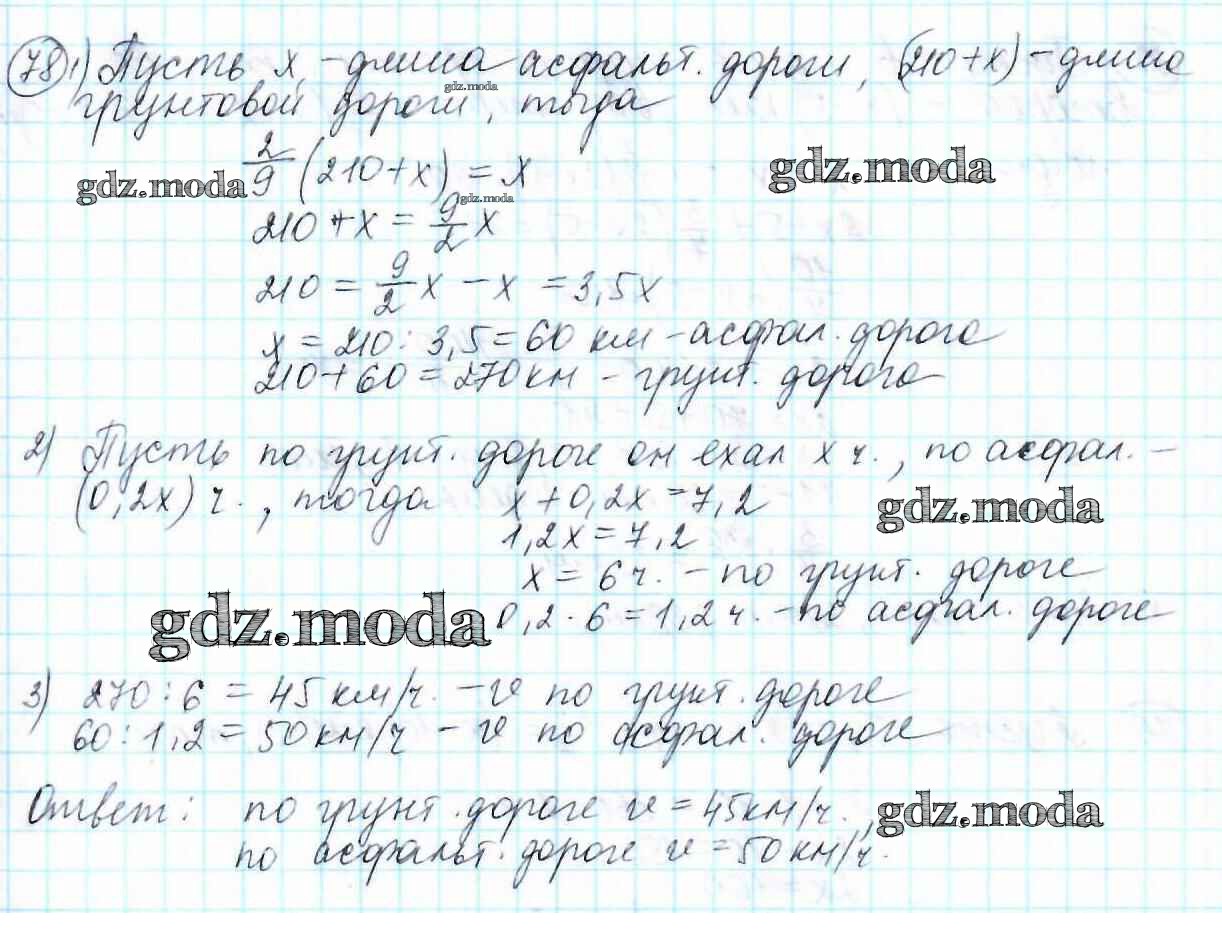 78 1) Пусть x - длина асфальт. дороги, (210+x) - длина
gdz.moda
грунтовой дороги, тогда
2/9 (210+x) = x
gdz.moda
gdz.moda
gdz.moda
210 + x = 9/2 x
210 = 9/2 x - x = 3,5x
x = 210 : 3,5 = 60 км - асфал. дорога
210 + 60 = 270 км - грунт. дорога
2) Пусть по грунт. дороге он ехал x ч., по асфал. -
(0,2x) ч., тогда x + 0,2x = 7,2
gdz.moda
1,2x = 7,2
x = 6 ч. - по грунт. дороге
gdz.moda
0,2 · 6 = 1,2 ч. - по асфал. дороге
3) 270 : 6 = 45 км/ч. - v по грунт. дороге
60 : 1,2 = 50 км/ч - v по асфал. дороге
Ответ: по грунт. дороге v = 45 км/ч.,
gdz.moda
по асфальт. дороге v = 50 км/ч.